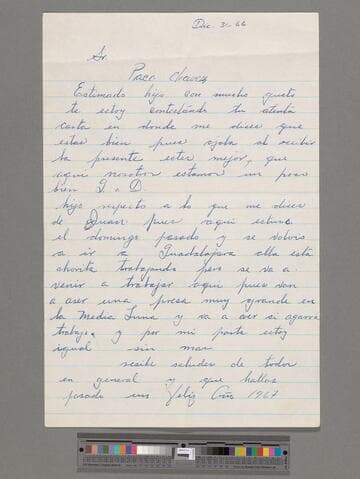 Dic. 31-66
Sr.
Paco Chavez
Estimado hijo con mucho gusto
te estoy contestando tu atenta
carta en donde me dices que
estas bien pues ojala al recibir
la presente estes mejor, que
aqui nosotros estamos un poco
bien G. a D.
hijo respecto a lo que me dices
de Juan pues aqui estuvo
el domingo pasado y se volvio
a ir a Guadalajara alla está
ahorita trabajando pero se va a
venir a trabajar aqui pues van
a aser una presa muy grande en
la Media Luna y va a ver si agarra
trabajo, y por mi parte estoy
igual sin mas
recibe saludes de todos
en general y que hallas
pasado un Feliz Año 1967